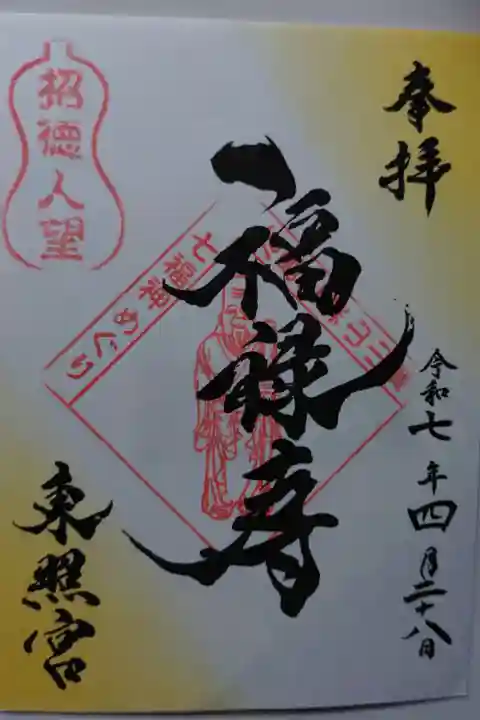 奉拝
令和七年四月二十八日
福禄寿
七福神めぐり
招徳人望
東照宮